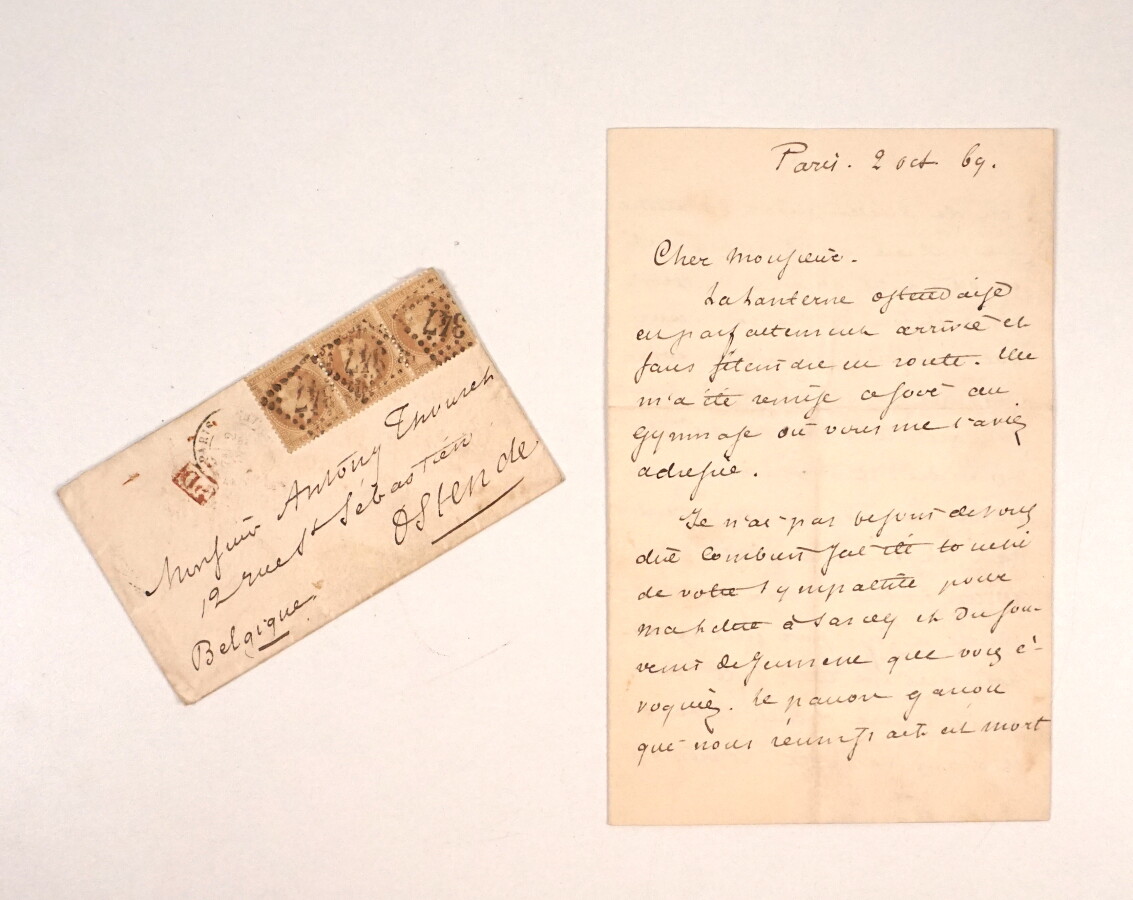 PARIS
PD
347
347
347
Monsieur Antony Thouret
12 rue St Sébastien
Ostende
Belgique.
Paris. 2 oct 69.
Cher Monsieur.
La Lanterne ostendaise
est parfaitement arrivée et
sans s'éteindre en route. Elle
m'a été remise ce soir au
Gymnase où vous me l'aviez
adressée.
Je n'ai pas besoin de vous
dire combien j'ai été touché
de votre sympathie pour
ma lettre à Sarcey et du sou-
venir de jeunesse que vous é-
voquiez. Le pauvre garçon
qui nous réunissait est mort